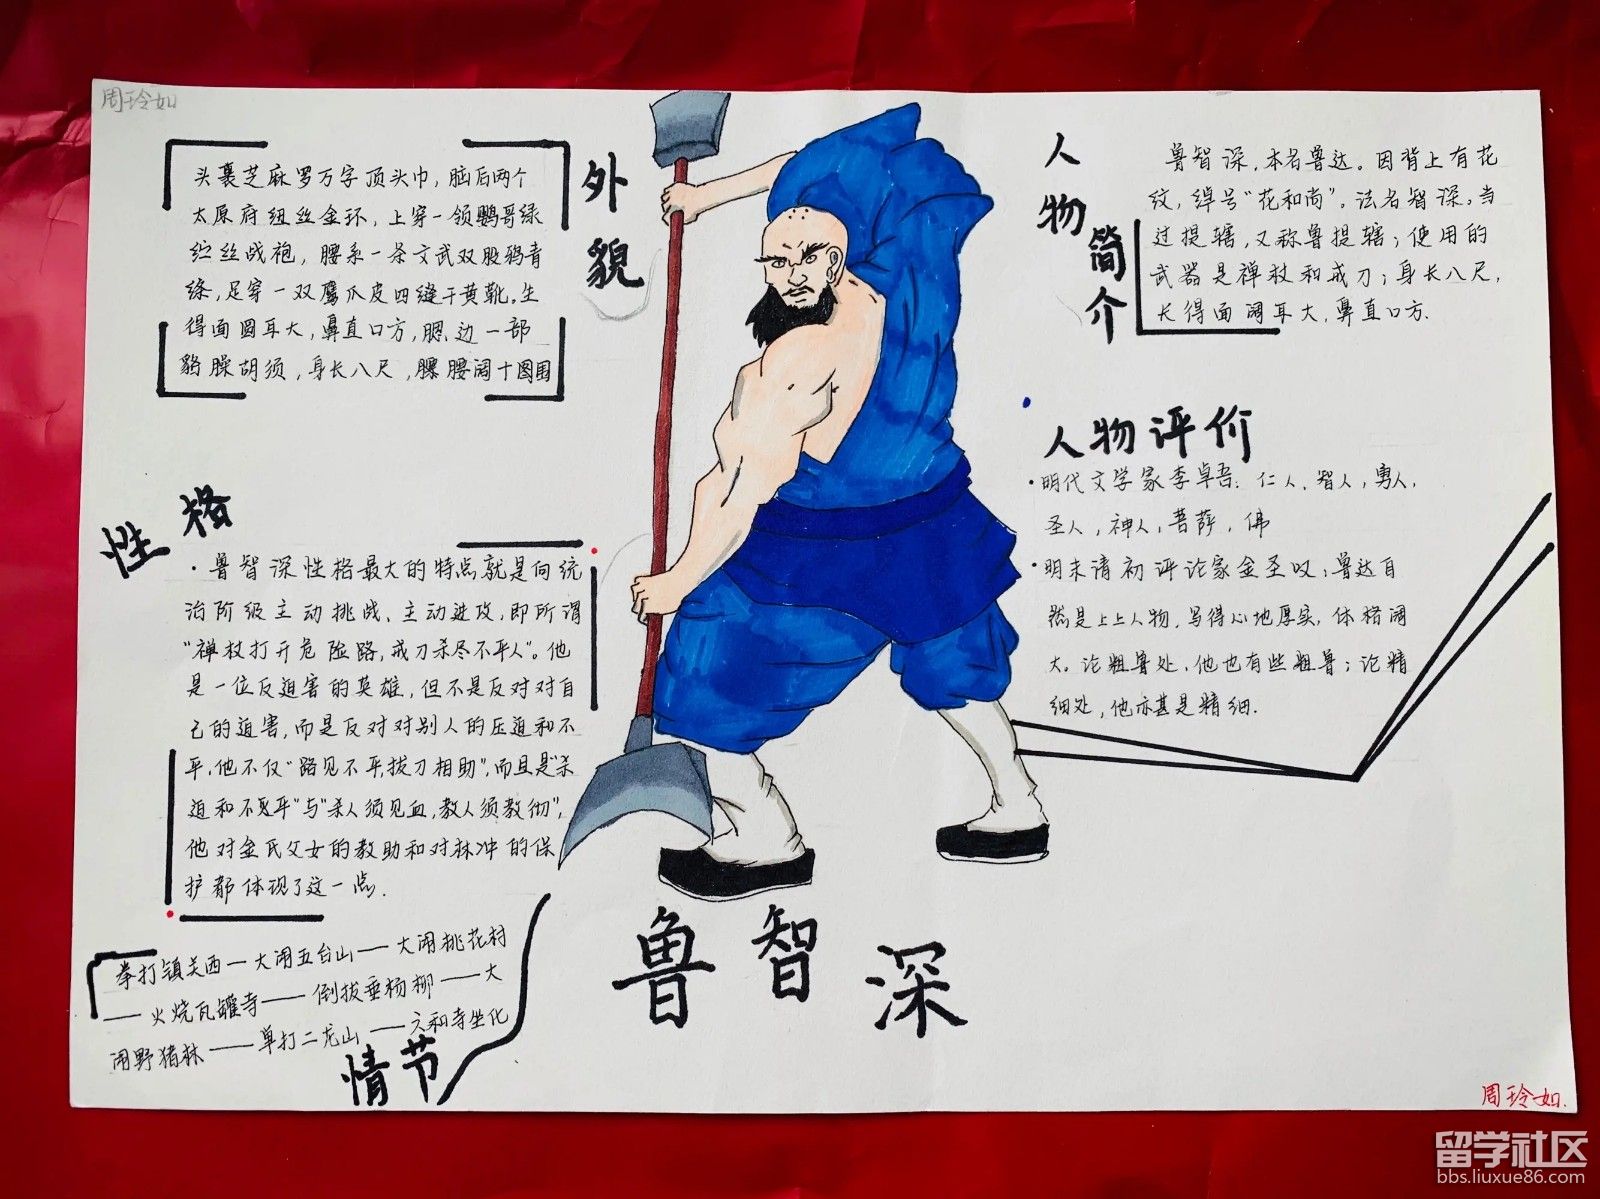 周玲如
外貌
头裹芝麻罗万字顶头巾，脑后两个
太原府纽丝金环，上穿一领鹦哥绿
纻丝战袍，腰系一条文武双股鸦青
绦，足穿一双鹰爪皮四缝干黄靴。生
得面圆耳大，鼻直口方，腮边一部
貉臊胡须，身长八尺，腰阔十围
性格
·鲁智深性格最大的特点就是向统
治阶级主动挑战、主动进攻，即所谓
“禅杖打开危险路，戒刀杀尽不平人”。他
是一位反迫害的英雄，但不是反对对自
己的迫害，而是反对对别人的压迫和不
平，他不仅“路见不平，拔刀相助”，而且是“杀
迫和不平”与“杀人须见血，救人须救彻”，
他对金氏父女的救助和对林冲的保
护都体现了这一点.
拳打镇关西—大闹五台山—大闹桃花村
—火烧瓦罐寺—倒拔垂杨柳—大
闹野猪林—单打二龙山—六和寺坐化
情节
人物简介
鲁智深，本名鲁达。因背上有花
纹，绰号“花和尚”。法名智深。当
过提辖，又称鲁提辖；使用的
武器是禅杖和戒刀；身长八尺，
长得面阔耳大，鼻直口方.
人物评价
·明代文学家李卓吾：仁人，智人，勇人，
圣人，神人，菩萨，佛
·明末请初评论家金圣叹：鲁达自
然是上上人物，写得心地厚实，体格阔
大。论粗鲁处，他也有些粗鲁；论精
细处，他亦甚是精细.
鲁智深
周玲如.
留学社区
bbs.liuxue86.com